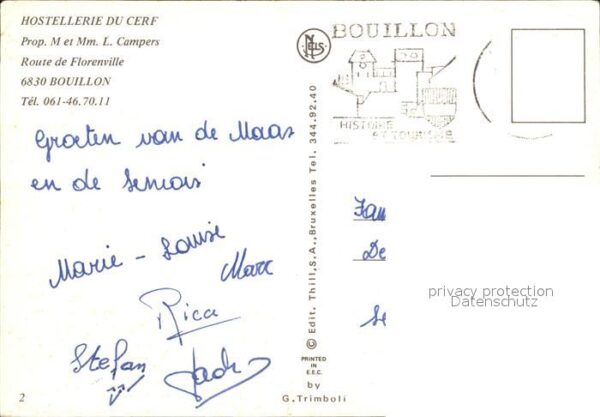 HOSTELLERIE DU CERF
Prop. M et Mm. L. Campers
Route de Florenville
6830 BOUILLON
Tél. 061-46.70.11
Groeten van de Maas
en de Semois
Marie-Louise
Marc
Rica
Stefan
2
NELS
© Edit. Thill, S.A., Bruxelles Tel. 344.92.40
PRINTED
IN
E.E.C.
by
G. Trimboli
BOUILLON
HISTOIRE
ET TOURISME
Fam
De
privacy protection
Datenschutz
Se